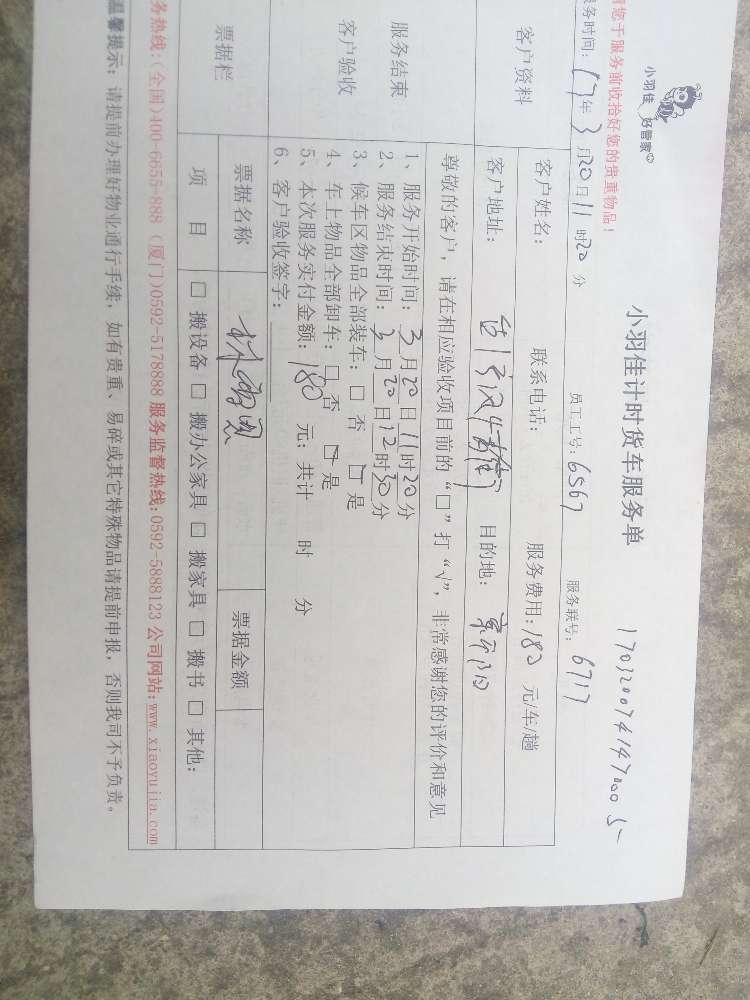 小羽佳 好管家
小羽佳计时货车服务单
1703200741470005
请您于服务前收拾好您的贵重物品！
服务时间：17年3月20日11时20分 员工工号：6567 服务联号：6717
客户资料
客户姓名： 联系电话： 服务费用：180 元/车/趟
客户地址： 目的地：
尊敬的客户，请在相应验收项目前的“□”打“√”，非常感谢您的评价和意见
服务结束
客户验收
1、服务开始时间：3月20日11时20分
2、服务结束时间：3月20日12时30分
3、候车区物品全部装车：□ 否 □ 是
4、车上物品全部卸车：□ 否 □ 是
5、本次服务实付金额：180 元；共计 时 分
6、客户验收签字：
票据栏
票据名称 票据金额
项 目 □ 搬设备 □ 搬办公家具 □ 搬家具 □ 搬书 □ 其他：
服务热线：(全国)400-6855-888 (厦门)0592-5178888 服务监督热线：0592-5888123 公司网站：www.xiaoyujia.com
温馨提示：请提前办理好物业通行手续，如有贵重、易碎或其它特殊物品请提前申报，否则我司不予负责。